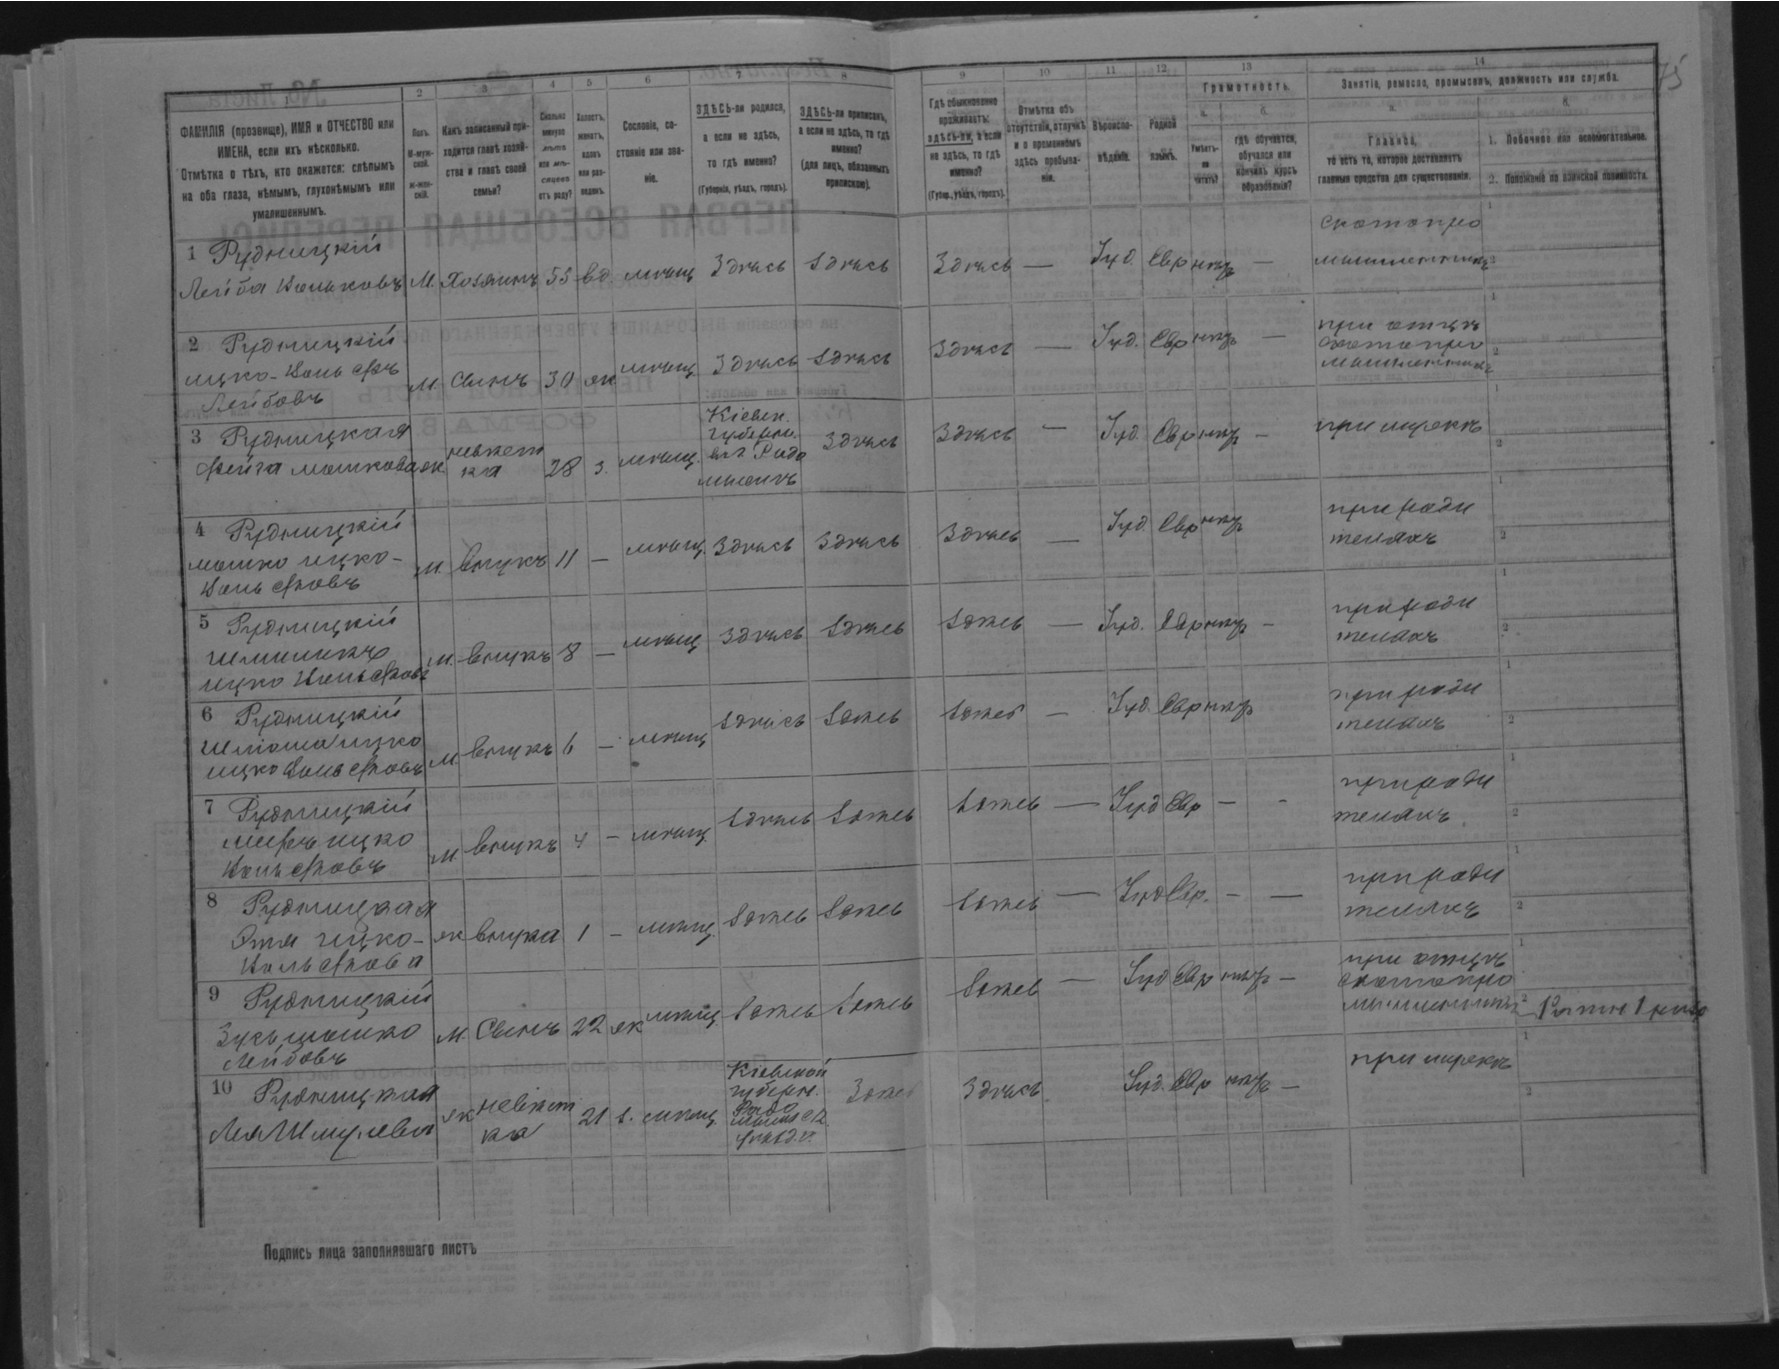 1 2 3 4 5 6 7 8 9 10 11 12 13 14
ФАМИЛІЯ (прозвище), ИМЯ и ОТЧЕСТВО или
ИМЕНА, если ихъ нѣсколько.
Отмѣтка о тѣхъ, кто окажется: слѣпымъ
на оба глаза, нѣмымъ, глухонѣмымъ или
умалишеннымъ.
Полъ.
М-муж-
ской.
ж-жен-
скій.
Какъ записанный при-
ходится главѣ хозяй-
ства и главѣ своей
семьи?
Сколько
минуло
лѣтъ
или мѣ-
сяцевъ
отъ роду?
Холостъ,
женатъ,
вдовъ
или раз-
веденъ.
Сословіе, со-
стояніе или зва-
ніе.
ЗДѢСЬ-ли родился,
а если не здѣсь,
то гдѣ именно?
(Губернія, уѣздъ, городъ).
ЗДѢСЬ-ли приписанъ,
а если не здѣсь, то гдѣ
именно?
(для лицъ, обязанныхъ
припискою).
Гдѣ обыкновенно
проживаетъ:
здѣсь-ли, а если
не здѣсь, то гдѣ
именно?
(Губер., уѣздъ, городъ).
Отмѣтка объ
отсутствіи, отлучкѣ
и о временномъ
здѣсь пребыва-
ніи.
Вѣроиспо-
вѣданіе.
Родной
языкъ.
Грамотность.
а.
Умѣетъ-
ли
читать?
б.
гдѣ обучается,
обучался или
кончилъ курсъ
образованія?
Занятіе, ремесло, промыселъ, должность или служба.
а.
Главное,
то есть то, которое доставляетъ
главныя средства для существованія.
б.
1. Побочное или вспомогательное.
2. Положеніе по воинской повинности.
1 Рудницкій
Лейба Вольковъ М. Хозяинъ 53 вд. мѣщ Здѣсь Здѣсь Здѣсь — Іуд. Евр —
скотопро
мышленникъ
2 Рудницкій
Ицко-Вольфъ
Лейбовъ
м. Сынъ 30 ж мѣщ Здѣсь Здѣсь Здѣсь — Іуд. Евр —
при отцѣ
скотопро
мышленникъ
3 Рудницкая
Фейга Мошкова ж невѣст
ка 28 з. мѣщ.
Кіевск.
губерни.
Радо
мыслѣ
Здѣсь Здѣсь — Іуд. Евр —
при мужѣ
4 Рудницкій
Мошко Ицко-
Вольфовъ
м. внукъ 11 — мѣщ. Здѣсь Здѣсь Здѣсь — Іуд. Евр
при роди
теляхъ
5 Рудницкій
Шмиликъ
Ицко Вольфовъ
м. внукъ 8 — мѣщ Здѣсь Здѣсь Здѣсь — Іуд. Евр —
при роди
теляхъ
6 Рудницкій
Ицко Вольфовъ
м. внукъ 6 — мѣщ Здѣсь Здѣсь Здѣсь — Іуд. Евр
при роди
теляхъ
7 Рудницкій
Мееръ Ицко
Вольфовъ
м. внукъ 4 — мѣщ. Здѣсь Здѣсь Здѣсь — Іуд Евр — -
при роди
теляхъ
8 Рудницкая
Ицко-
Вольфова
ж внука 1 — мѣщ. Здѣсь Здѣсь Здѣсь — Іуд Евр. — —
при роди
теляхъ
9 Рудницкій
Лейбовъ
м. Сынъ 22 ж мѣщ. Здѣсь Здѣсь Здѣсь — Іуд Евр —
при отцѣ
скотопро
мышленникъ
10 Рудницкая
Лея Шмулева
ж невѣст
ка 21 з. мѣщ
Кіевской
губерн.
Радо
Здѣсь Здѣсь Іуд. Евр —
при мужѣ
Подпись лица заполнявшаго листъ